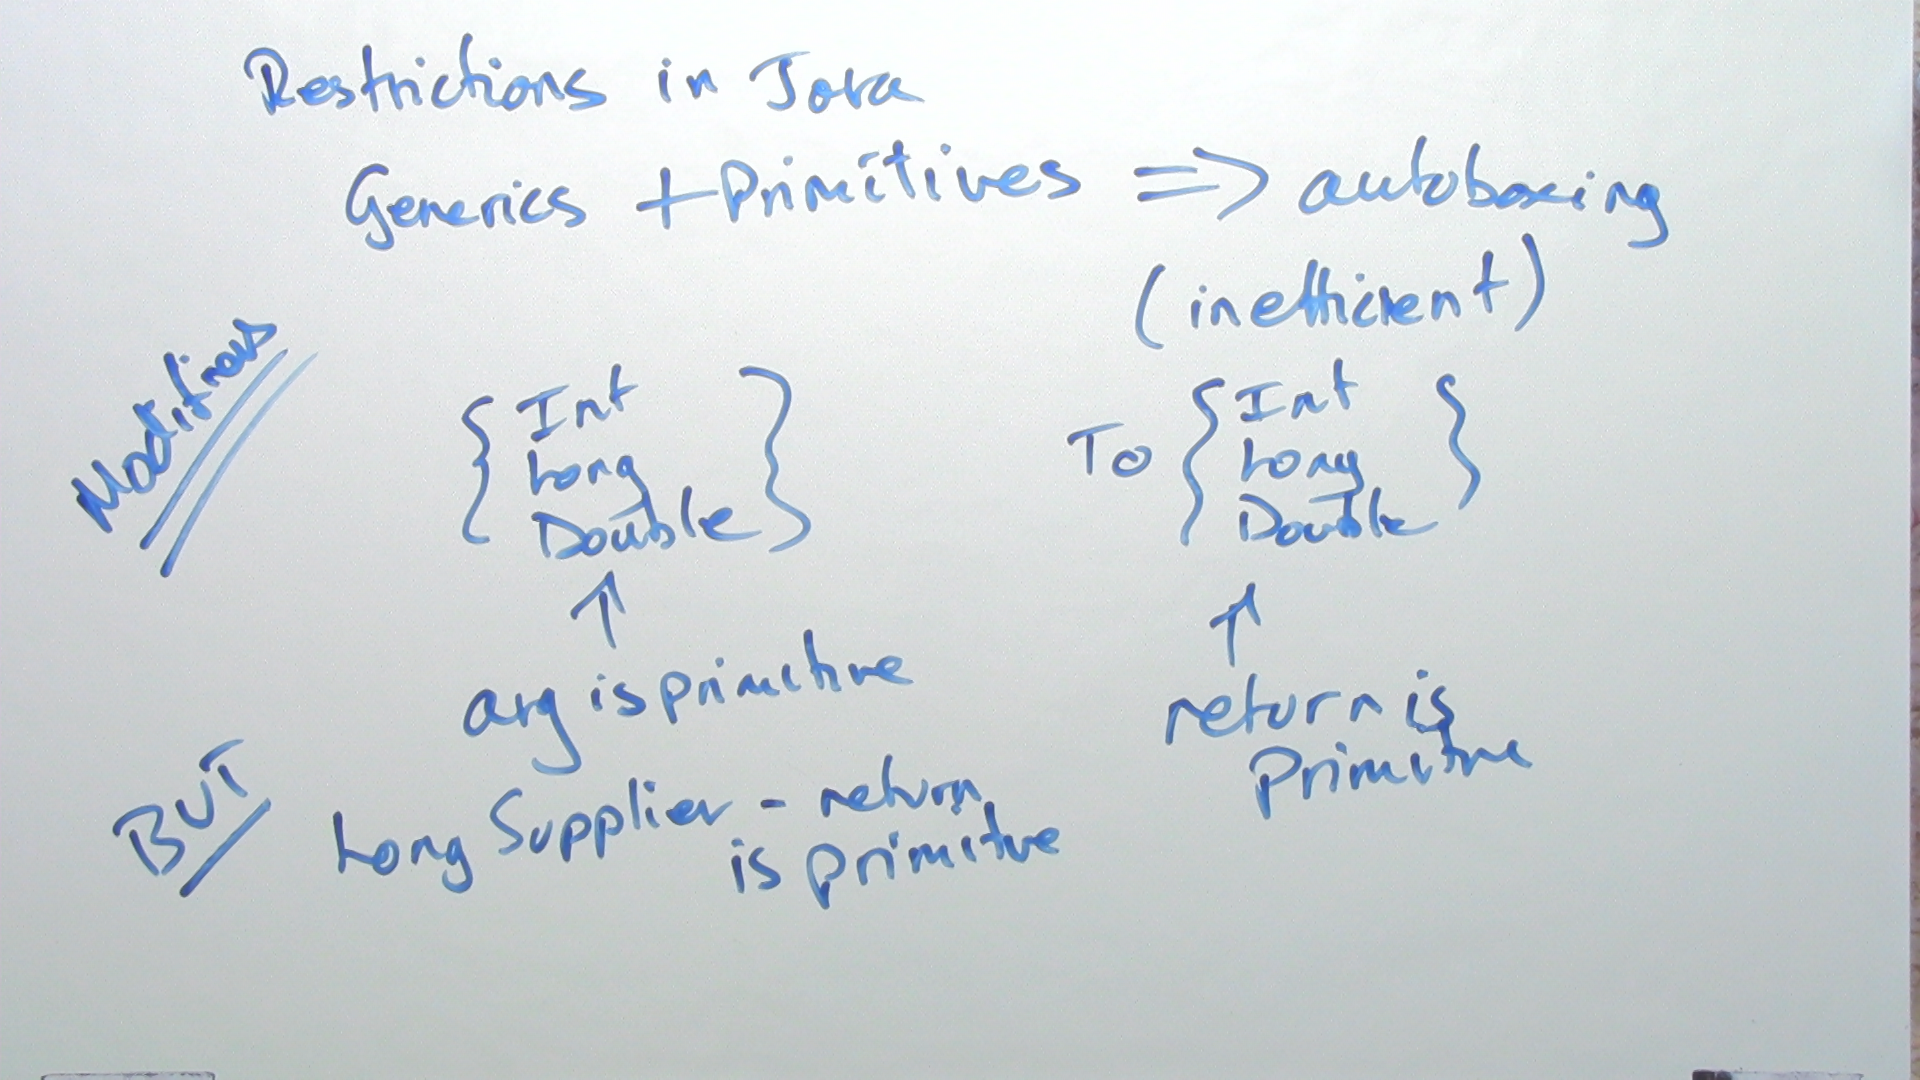 Restrictions in Java
Generics + Primitives => autoboxing
(inefficient)
Modifiers
{ Int
Long
Double }
To { Int
Long
Double }
↑
arg is primitive
↑
return is
Primitive
BUT
Long Supplier - return
is primitive